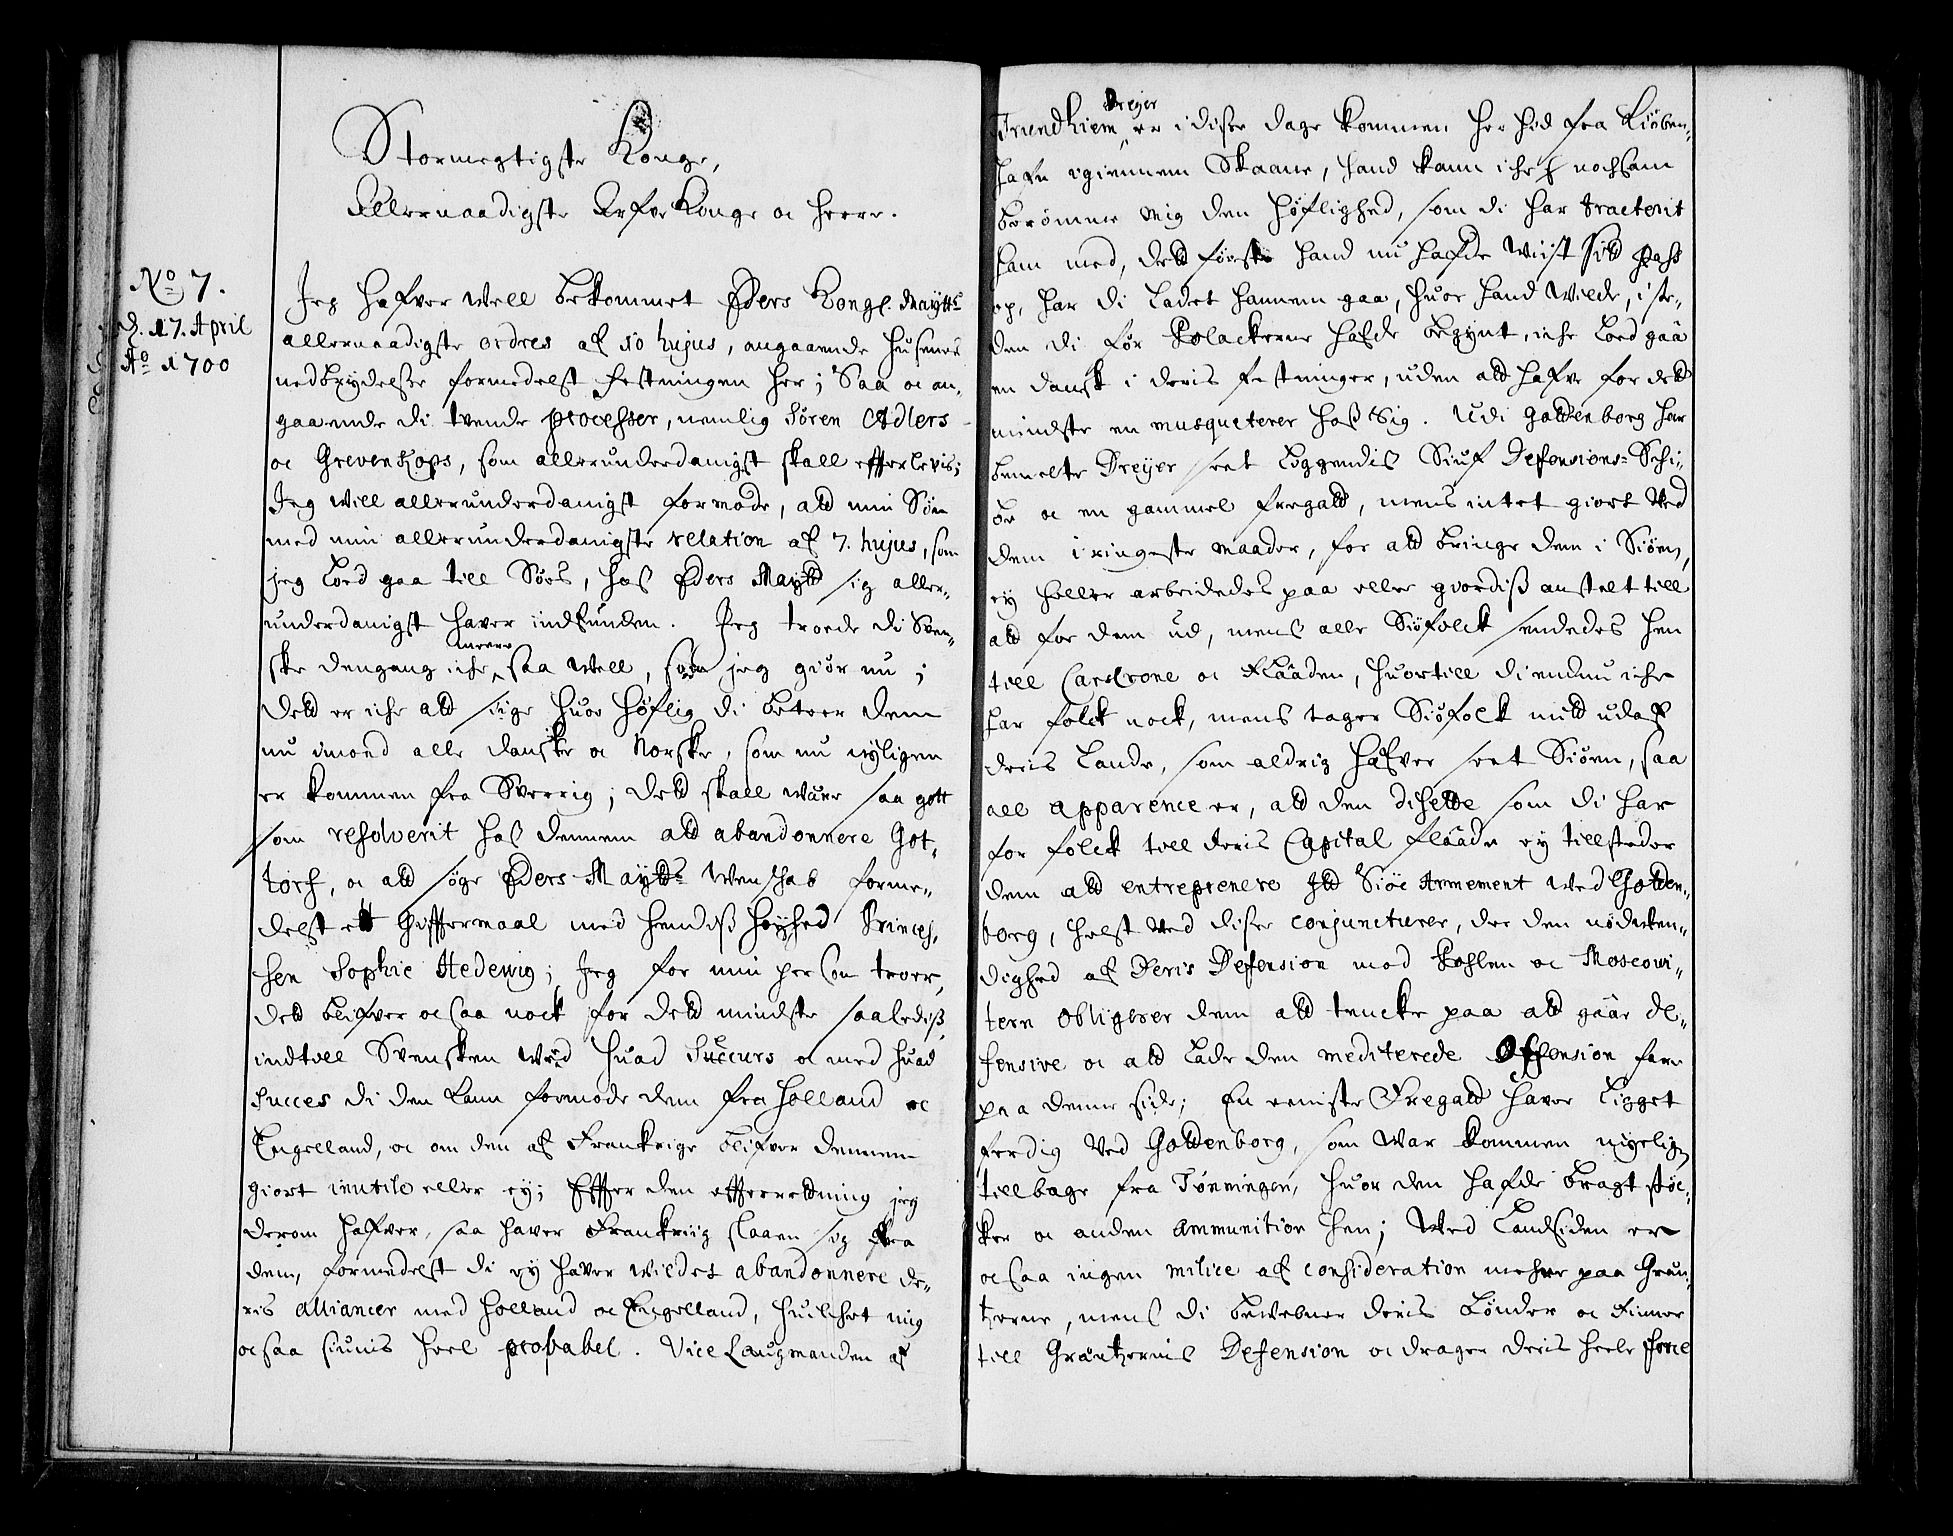 Stormegtigste Konge,
Allernaadigste Arfve Konge oc Herre.
No 7.
d. 17. April
Ao 1700
Jeg hafver well bekommet Eders Kongl. Maytts
allernaadigste ordres af 10 hujus, angaaende Husenes
nedbrydelse formedelst festningen her; Saa oc an,
gaaende di tvende processer, nemlig Søren Adlers
oc Grevenkops, som allerunderdanigst skall effterlevis;
Jeg will allerunderdanigst formode, ald min Søn
med min allerunderdanigste relation af 7. hujus, som
jeg Loed gaa till Søes, hos Eders Maytt sig aller,,
underdanigst haver indfunden. Jeg troede di Sven,,
ske dengang iche saa well, som jeg giør nu;
deld er iche ald sige huor høflig di beteer dem
nu imoed alle danske oc Norske, som nu nyligen
er kommen fra Sverrig; deld skall være saa gott
som resolverit hos dennem ald abandonnere Got,
torf, oc ald søge Eders Maytts Wenskab forme,,
delst ett Gifftermaal med hendis høyhed Princes,
sen Sophie Hedewig; Jeg for min person troer,
deld blifver ocsaa nock for deld mindste saaledis
indtill Svensken Weed huad Succurs oc med huad
Succes di den kann formode dem fra Holland oc
Engelland, oc om den af Franckrige blifver dennem
giort inutile eller ey; Effter den effterretning jeg
derom hafver, saa haver Franckriig slaaen sig fra
dem, formedelst di ey haver wildet abandonnere de,,
ris alliancer med Holland oc Engelland, huilchet mig
ocsaa siunis heel probabel. Vice Laugmanden af
Trundhiem Dreyer er i disse dage kommen her hid fra Kiøben,,
hafn igiennem Skaane, hand kann iche nochsom
berømme mig den høflighed, som di har tracterit
ham med, deld første hand nu hafde wiist sild pass
op, har di Ladet hannem gaa, huor hand wilde, i ste,,
den di før Polackerne hafde begynt, iche Loed gaa
en dansk i deris festninger, uden ald hafve for deld
mindste en musqueterer hos Sig. Udi Gottenborg har
bemelte Dreyer seet Liggendis Siuf Defensions-Schi,,
be oc en gammel fregatt, mens intet giort Ved
dem i ringeste maader, for ald bringe dem i Siøen,
ey heller arbeidedes paa eller giordis anstelt till
ald for dem ud, mens alle Siøfolck sendedes hen
till Carlscrone oc Flåden, huortill di endnu iche
har folck nock, mens tager Siøfolck mitt udaf
deris Lande, som aldrig hafver seet Siøen, saa
all apparence er, ald den disette som di har
for folck till deris Capital flåde ey tillsteder
dem ald entreprenere Ild Siøe Armement wed Gotten,,
borg, helst Ved disse conjuncturer, der den nødwen,,
dighed af Deris Defension mod Pohlen oc Moscowi,,
tern obligerer dem ald tencke paa ald gåe de,
fensive oc ald Lade den mediterede Offension fare
paa denne side; En eeniste Fregatt haver Ligget
ferdig Ved Gottenborg, som War kommen nyelig
tillbage fra Tønningen, huor den hafde bragt støc,
ker oc anden ammunition hen; Wed Landsiden er
ocsaa ingen milice af consideration mehre paa Græn,
tzerne, mens di bewebner deris bønder oc Finner
till Grentzernis Defension oc drager deris heele force